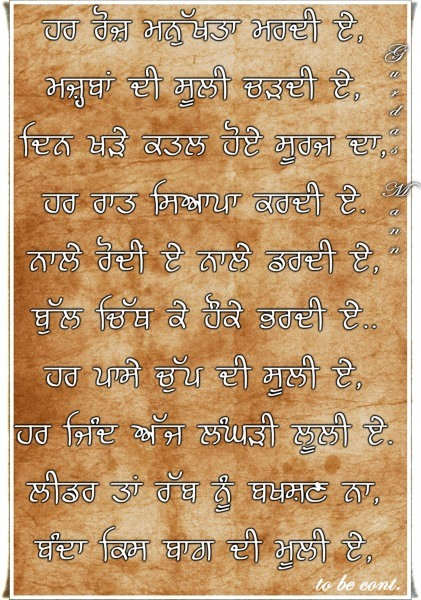 ਹਰ ਰੋਜ਼ ਮਨੁੱਖਤਾ ਮਰਦੀ ਏ,
ਮਜ਼੍ਹਬਾਂ ਦੀ ਸੂਲੀ ਚੜਦੀ ਏ,
ਦਿਨ ਖੜੇ ਕਤਲ ਹੋਏ ਸੂਰਜ ਦਾ,
ਹਰ ਰਾਤ ਸਿਆਪਾ ਕਰਦੀ ਏ.
ਨਾਲੇ ਰੋਦੀਂ ਏ ਨਾਲੇ ਡਰਦੀ ਏ,
ਬੁੱਲ ਚਿੱਥ ਕੇ ਹੌਕੇ ਭਰਦੀ ਏ..
ਹਰ ਪਾਸੇ ਚੁੱਪ ਦੀ ਸੂਲੀ ਏ,
ਹਰ ਜਿੰਦ ਅੱਜ ਲੰਘੜੀ ਲੂਲੀ ਏ.
ਲੀਡਰ ਤਾਂ ਰੱਬ ਨੂੰ ਬਖਸ਼ਣ ਨਾ,
ਬੰਦਾ ਕਿਸ ਬਾਗ ਦੀ ਮੂਲੀ ਏ,
to be cont.
Gurdas Mann